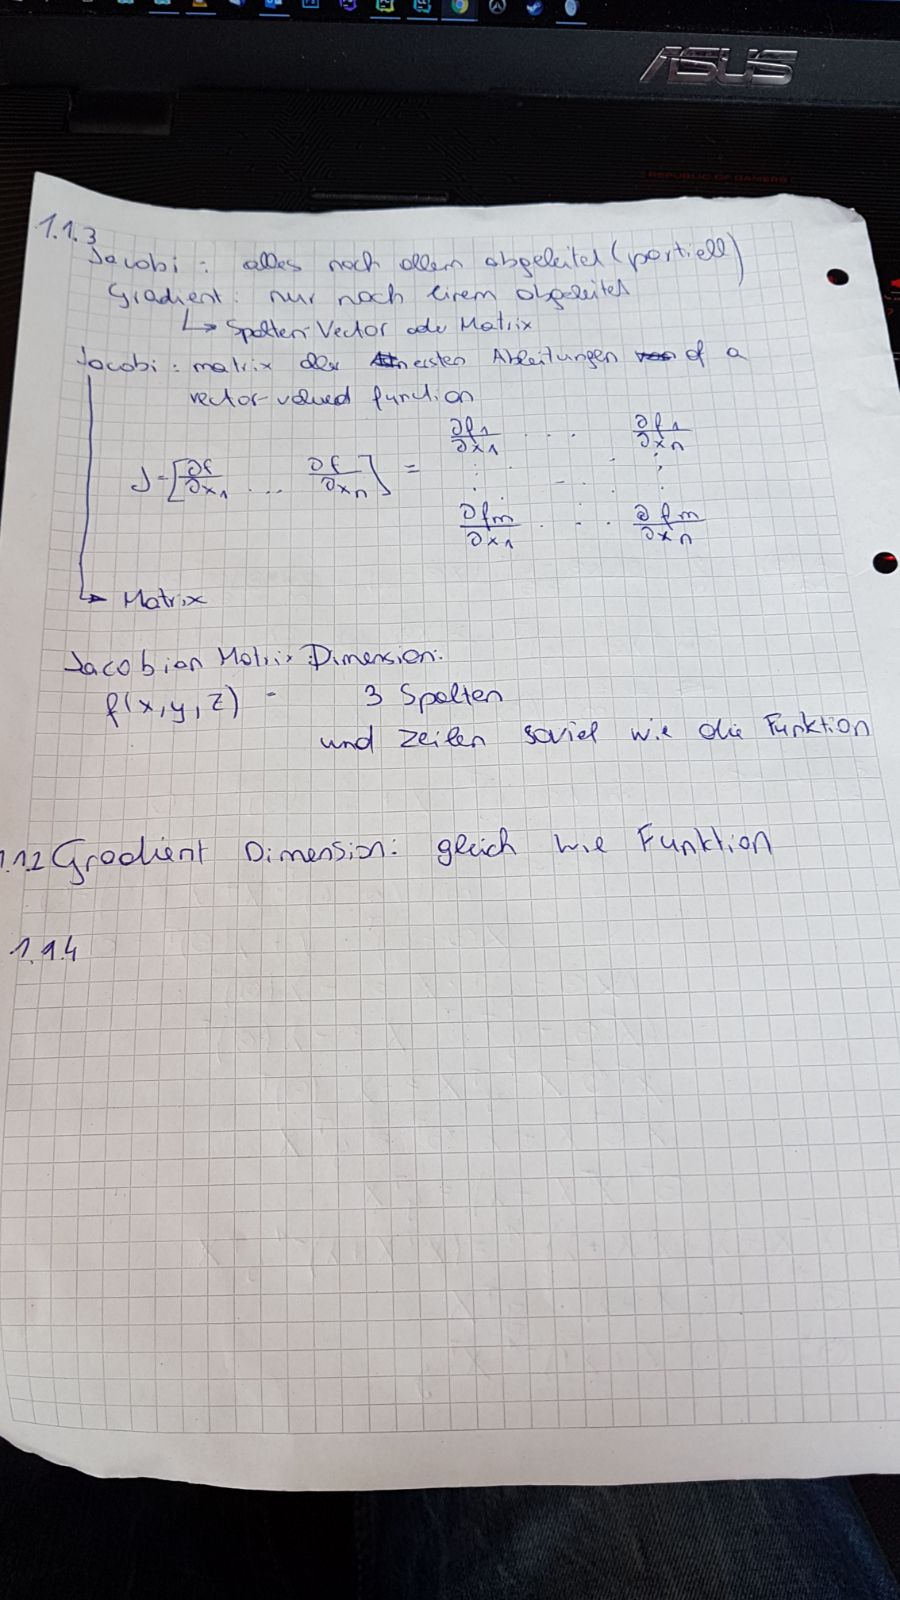 ASUS
REPUBLIC OF GAMERS
1.1.3
Jacobi: alles nach allem abgeleitet (partiell)
Gradient: nur nach einem abgeleitet
↳ Spalten-Vector oder Matrix
Jacobi: matrix der ersten Ableitungen of a
vector-valued function
J = [∂f/∂x1 ... ∂f/∂xn] = ∂f1/∂x1 ... ∂f1/∂xn
⋮ ⋱ ⋮
∂fm/∂x1 ... ∂fm/∂xn
↳ Matrix
Jacobian Matrix Dimension:
f(x,y,z) = 3 Spalten
und zeilen soviel wie die Funktion
1.1.2 Gradient Dimension: gleich wie Funktion
1.1.4